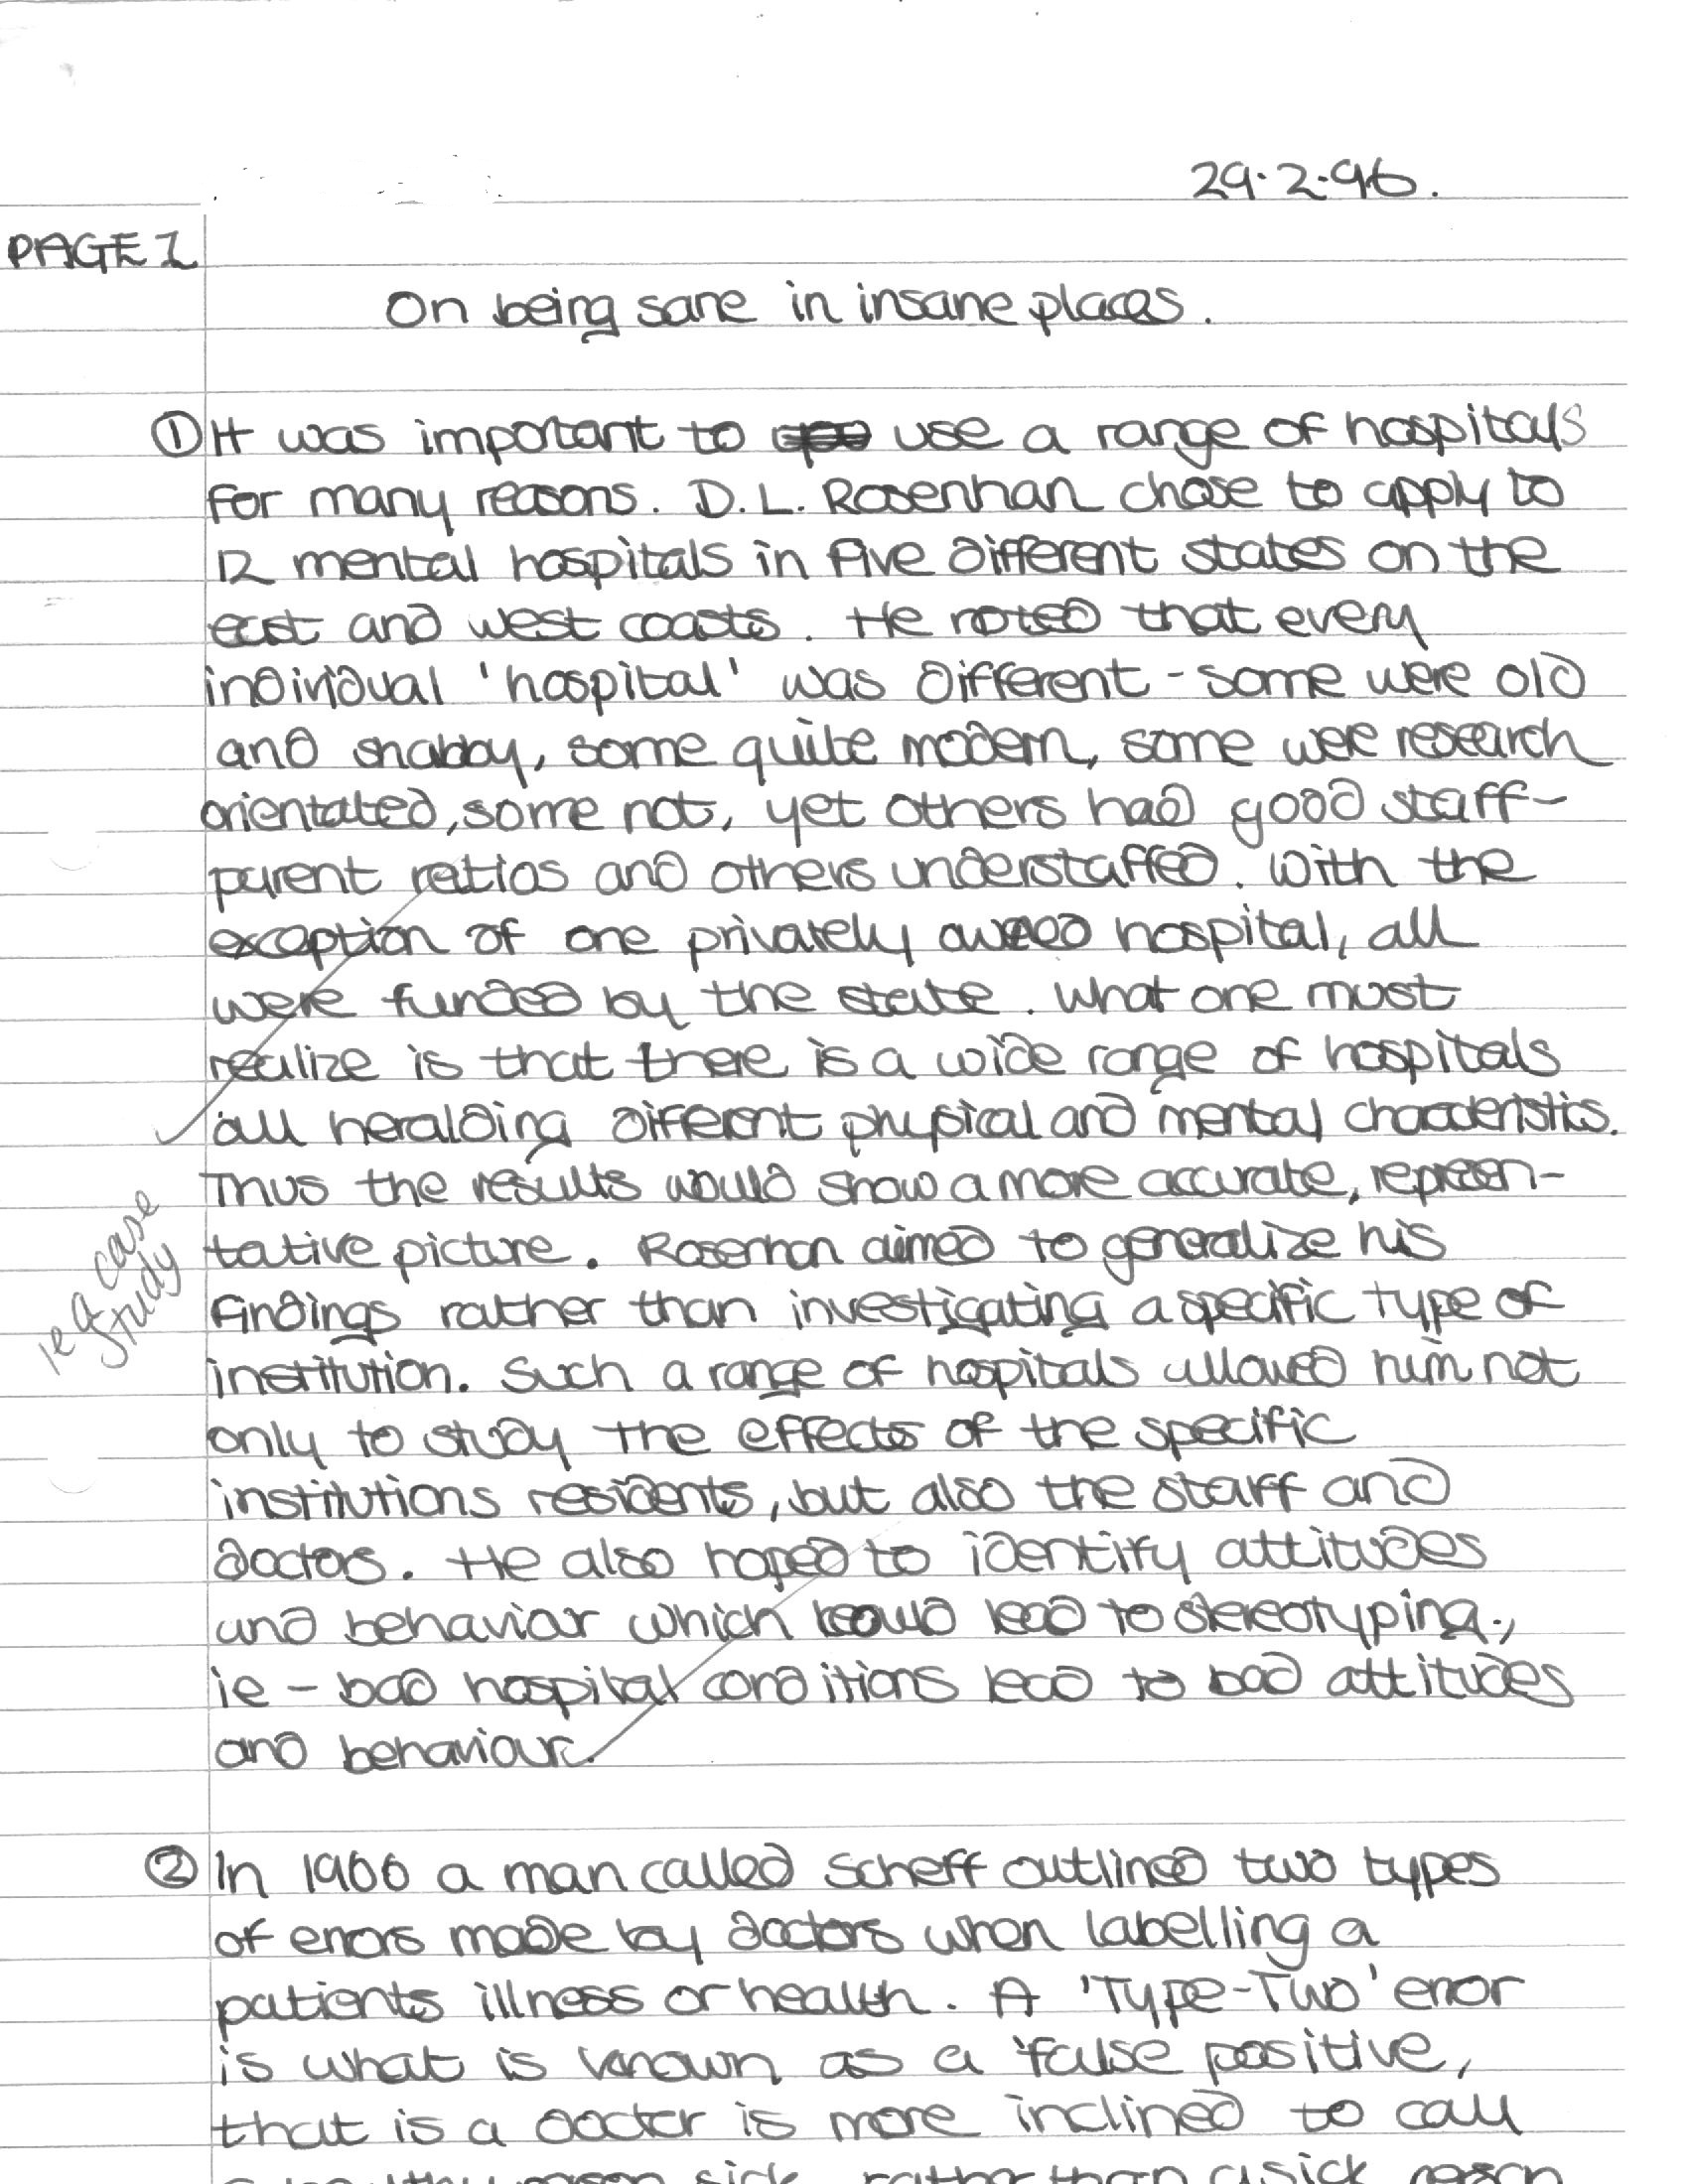 29.2.96.
PAGE 1
On being sane in insane places.
① It was important to use a range of hospitals
for many reasons. D.L. Rosenhan chose to apply to
12 mental hospitals in five different states on the
east and west coasts. He noted that every
individual 'hospital' was different - some were old
and shabby, some quite modern, some were research
orientated, some not, yet others had good staff-
parent ratios and others understaffed. With the
exception of one privately owned hospital, all
were funded by the state. What one must
realize is that there is a wide range of hospitals
all heralding different physical and mental characteristics.
Thus the results would show a more accurate, represen-
tative picture. Rosenhan aimed to generalize his
ie a case
study
findings rather than investigating a specific type of
institution. Such a range of hospitals allowed him not
only to study the effects of the specific
institutions residents, but also the staff and
doctors. He also hoped to identify attitudes
and behavior which could lead to stereotyping.,
ie - bad hospital conditions lead to bad attitudes
and behaviour.
② In 1966 a man called Scheff outlined two types
of errors made by doctors when labelling a
patients illness or health. A 'Type-Two' error
is what is known as a 'false positive,
that is a doctor is more inclined to call
sick rather than a sick person